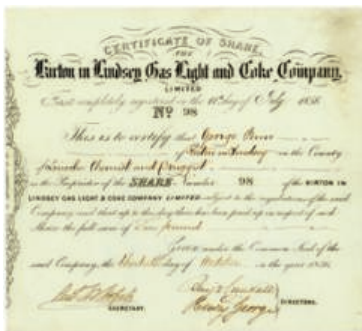 CERTIFICATE OF SHARE.
THE
Kirton in Lindsey Gas Light and Coke Company,
LIMITED
First completely registered on the 11th day of July 1856.
No 98
This is to certify that George
of Kirton in Lindsey in the County
of Lincoln Chemist and Druggist
is the Proprietor of the SHARE number 98 of the KIRTON IN
LINDSEY GAS LIGHT & COKE COMPANY LIMITED subject to the regulations of the said
Company and that up to this day there has been paid up in respect of such
Share the full sum of pound
Given under the Common Seal of the
said Company, the day of October in the year 1856.
SECRETARY.
George
DIRECTORS.